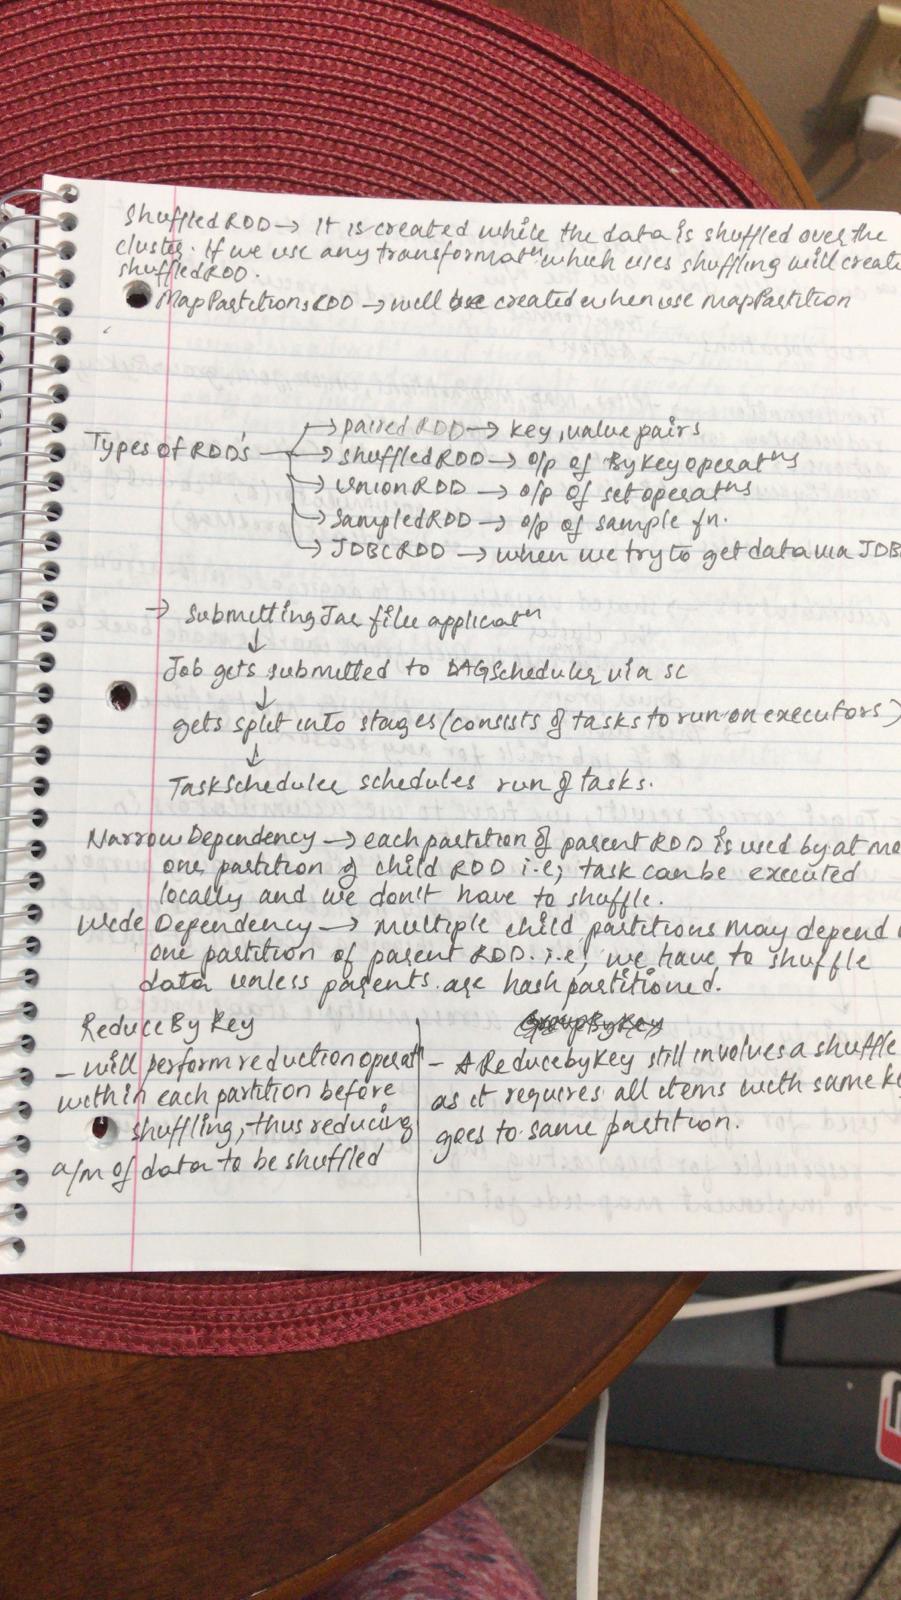 ShuffledRDD → It is created while the data is shuffled over the
cluster. If we use any transformatⁿ which uses shuffling will create
shuffledRDD.
MapPartitionsRDD → will be created when use mapPartition
Types of RDD's → pairedRDD → key, value pairs
→ shuffledRDD → o/p of ByKey operatⁿs
→ UnionRDD → o/p of set operatⁿs
→ SampledRDD → o/p of sample fn.
→ JDBCRDD → when we try to get data via JDB
→ Submitting Jar file applicatⁿ
↓
Job gets submitted to DAGScheduler via SC
↓
gets split into stages (consists of tasks to run on executors)
↓
TaskScheduler schedules run of tasks.
Narrow Dependency → each partition of parent RDD is used by at mo
one partition of child RDD i.e; task can be executed
locally and we don't have to shuffle.
Wide Dependency → multiple child partitions may depend
one partition of parent RDD. i.e; we have to shuffle
data unless parents are hash partitioned.
ReduceByKey
- will perform reduction operatⁿ
within each partition before
shuffling, thus reducing
a/m of data to be shuffled
GroupByKey
- A ReducebyKey still involves a shuffle
as it requires all items with same k
goes to same partition.